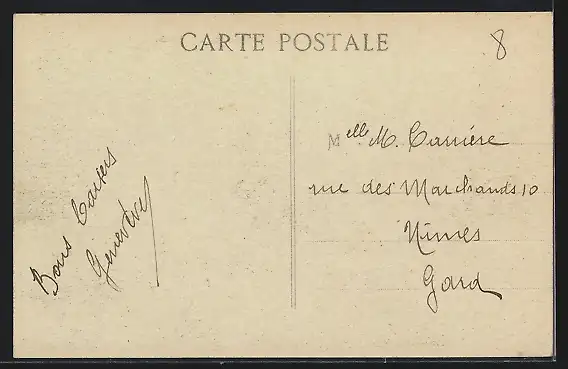 CARTE POSTALE
8
Bons Baisers
Geneviève
Melle M. Carrière
rue des Marchands 10
Nimes
Gard